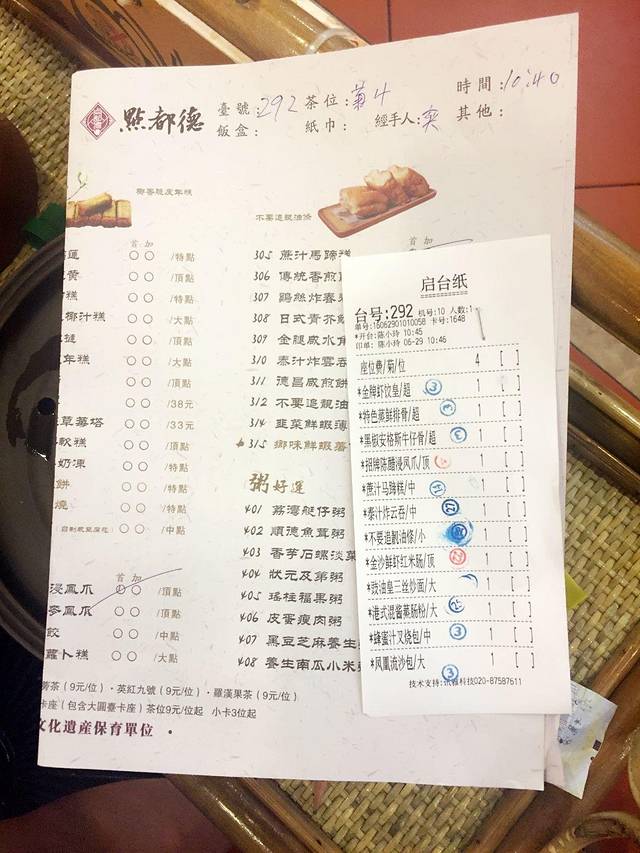 點都德
臺號:292 茶位:菊4 時間:10:40
飯盒: 紙巾: 經手人: 其他:
椰香脆皮年糕
不要追靚油條
首 加
首 加
/特點
/頂點
/特點
椰汁糕 /大點
撻 /頂點
年糕 /大點
/頂點
/38元
草莓塔 /33元
軟糕 /頂點
奶凍 /特點
餅 /特點
燒 /特點
/中點
首 加
浸鳳爪 /頂點
鳳爪 /頂點
餃 /中點
蘿卜糕 /大點
305 蔗汁馬蹄糕
306 傳統香煎
307 鵝絲炸春
308 日式青芥
309 金腿咸水角
310 泰汁炸雲吞
311 德昌咸煎餅
312 不要追靚油
314 韭菜鮮蝦薄
315 椰味鮮蝦
粥好運
401 荔灣艇仔粥
402 順德魚茸粥
403 香芋石螺淡菜
404 狀元及第粥
405 瑤柱福果粥
406 皮蛋瘦肉粥
407 黑豆芝麻養生
408 養生南瓜小米
茶(9元/位)·英紅九號(9元/位)·羅漢果茶(9元/位)
卡座(包含大圓臺卡座)茶位9元/位起 小卡3位起
文化遺產保育單位 ·
启台纸
台号:292 机号:10 人数:1
单号:16062901010058 卡号:1648
*开台:陈小玲 10:45
印单: 陈小玲 06-29 10:46
座位费/菊/位 4 [ ]
*金牌虾饺皇/超 ③ 1 [ ]
*特色蒸鲜排骨/超 1 [ ]
*黑椒安格斯牛仔骨/超 ③ 1 [ ]
*招牌陈醋浸凤爪/顶 1 [ ]
*蔗汁马蹄糕/中 1 [ ]
*泰汁炸云吞/中 1 [ ]
*不要追靓油條/小 1 [ ]
*金沙鲜虾红米肠/顶 1 [ ]
*豉油皇三丝炒面/大 1 [ ]
*港式混酱蒸肠粉/大 1 [ ]
*蜂蜜汁叉烧包/中 ③ 1 [ ]
*凤凰流沙包/大 ③ 1 [ ]
技术支持:讯雅科技020-87587611